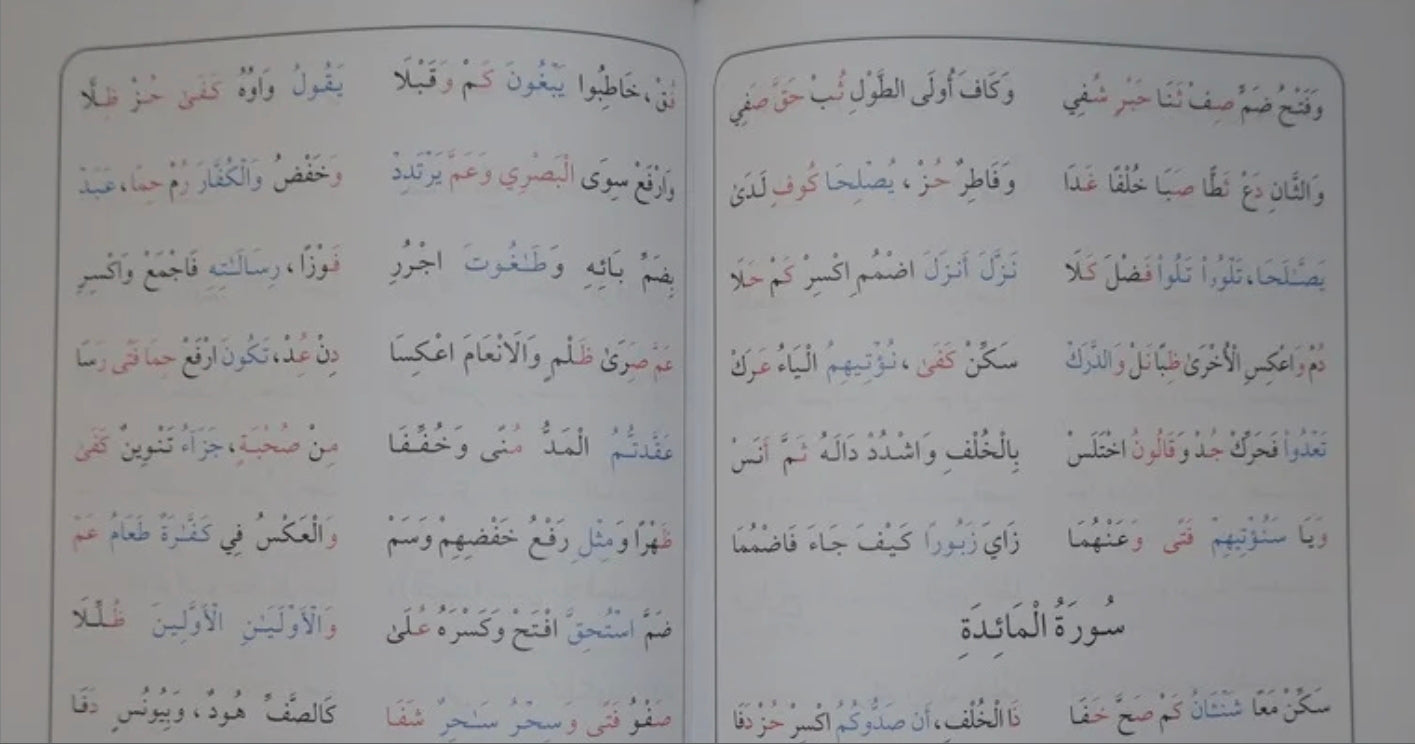 وَفَتْحُ ضَمٍّ صِفْ ثَنَا حَبْرٍ شُفِي وَكَافَ أُولَى الطَّوْلِ ثُبْ حَقٌّ صَفِي
وَالثَّانِ دَعْ ثَطَّا صَبَا خُلْفًا غَدَا وَفَاطِرٌ حُزْ، يُصْلِحَا كُوفٍ لَدَىٰ
يَصَّـٰلَحَا، تَلْوُۥاْ تَلُواْ فَضْلٌ كَلَا نَزَّلَ أَنزَلَ اضْمُمِ اكْسِرْ كَمْ حَلَا
دُمْ وَاعْكِسِ الْأُخْرَىٰ ظِبًا نَلْ وَالدَّرَكْ سَكِّنْ كَفَىٰ، نُؤْتِيهِمُ الْيَاءُ عَرَكْ
تَعْدُواْ فَحَرِّكْ جُدْ وَقَالُونُ اخْتَلَسْ بِالْخُلْفِ وَاشْدُدْ دَالَهُ ثَمَّ أَنَسْ
وَيَا سَنُؤْتِيهِمْ فَتًى وَعَنْهُمَا زَايَ زَبُورًا كَيْفَ جَاءَ فَاضْمُمَا
سُورَةُ الْمَائِدَةِ
سَكِّنْ مَعًا شَنَـَٔانُ كَمْ صَحَّ خَفَا ذَا الْخُلْفِ، أَن صَدُّوكُمُ اكْسِرْ حُزْ دَفَا
فُقْ، خَاطِبُوا يَبْغُونَ كَمْ وَقَبْلَا يَقُولُ وَاوُهُ كَفَىٰ حُزْ ظِلَّا
وَارْفَعْ سِوَى الْبَصْرِي وَعَمَّ يَرْتَدِدْ وَخَفْضُ وَالْكُفَّارَ رُمْ حِمًا، عَبُدْ
بِضَمِّ بَائِهِ وَطَـٰغُوتَ اجْرُرِ فَوْزًا، رِسَالَـٰتِهِ فَاجْمَعْ وَاكْسِرِ
عَمَّ صَرَىٰ ظَلْمٍ وَالَانْعَامَ اعْكِسَا دِنْ عُدْ، تَكُونَ ارْفَعْ حِمًا فَتًى رَسَا
عَقَّدتُّمُ الْمَدُّ مُنًى وَخُفِّفَا مِنْ صُحْبَةٍ، جَزَآءُ تَنْوِينٌ كَفَىٰ
ظَهْرًا وَمِثْلِ رَفْعُ خَفْضِهِمْ وَسَمْ وَالْعَكْسُ فِي كَفَّـٰرَةٌ طَعَامُ عَمْ
ضَمَّ اسْتُحِقَّ افْتَحْ وَكَسْرَهُ عُلَىٰ وَالْأَوْلَيَـٰنِ الْأَوَّلِينَ ظُلِّلَا
صَفْوُ فَتًى وَسِحْرُ سَـٰحِرٌ شَفَا كَالصَّفِّ هُودٌ، وَبِيُونُسٍ دَفَا